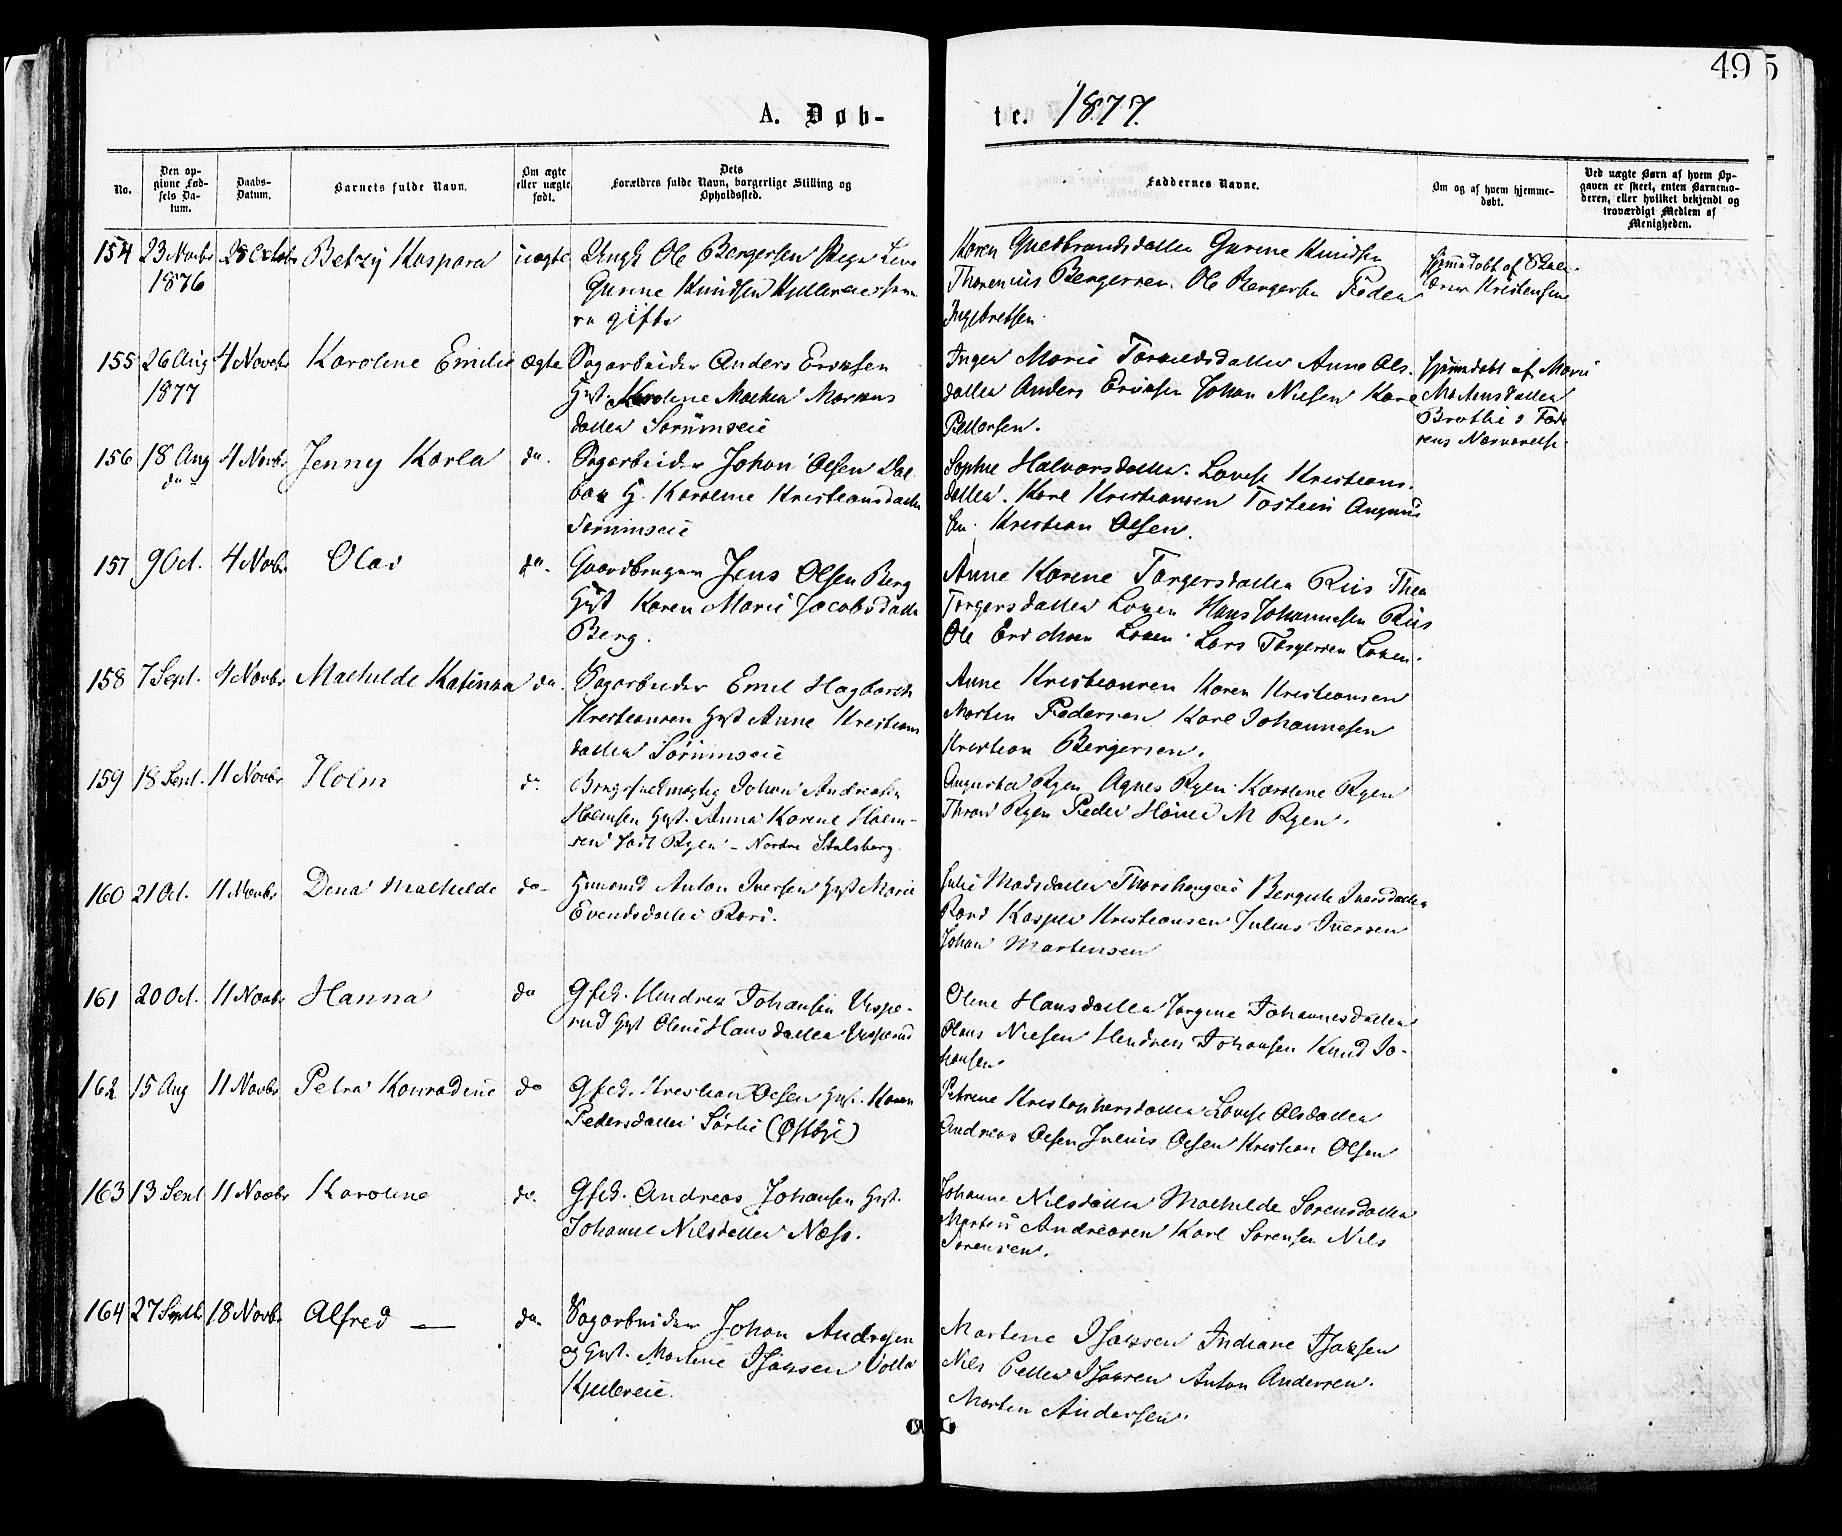 49
5
A. Døb-
te. 1877.
No.
Den op-
givne Fød-
sels Da-
tum.
Daabs-
Datum.
Barnets fulde Navn.
Om ægte
eller uægte
født.
Dets
Forældres fulde Navn, borgerlige Stilling og
Opholdssted.
Faddernes Navne.
Om og af hvem hjemme-
døbt.
Ved uægte Børn af hvem Op-
gaven er skeet, enten Barnemo-
deren, eller hvilket bekjendt og
troværdigt Medlem af
Menigheden.
154 23 Novbr 28 Octobr Betzy Kaspara uægte Ungk Ole Bergersen
1876
Gurine Knudsen
gifte
Karen Gulbrandsdatter Gurine Knudsen
Thorenius Bergersen. Ole Bergersen
Ingebretsen.
Hjemdøbt af
Kristensen
155 26 Aug 4 Novebr Karoline Emilie ægte Sagarbeider Anders Eriksen
1877
Hust. Karoline Markus
datter Sørumseie
Inger Marie Anne Ols-
datter Anders Eriksen Johan Nielsen Karl
Pettersen.
Hjemdøbt af Marie
Mortensdatter
Brothe i Fade
rens Nærværelse.
156 18 Aug 4 Novbr Jenny Karla do. Sagarbeider Johan Olsen Dal
do
H. Karoline Kristiansdatter
Sørumseie
Sophie Halvorsdatter. Lovise Kristians-
datter. Karl Kristiansen Tostein
sen. Kristian Olsen.
157 9 Oct. 4 Novbr Olai do. Gaardbruger Jens Olsen Berg
Hust Karen Marie Jacobsdatter
Berg.
Anne Karine Torgersdatter Riis Thea
Torgersdatter Hans Johannesen Riis
Ole Lars Torgersen
158 7 Sept. 4 Novbr Mathilde Katinka do. Sagarbeider Emil Hagbarth
Kristiansen Hust Anne Kristians
datter Sørumseie
Anne Kristiansen Karen Kristiansen
Morten Pedersen Karl Johannesen
Kristian Bergersen.
159 18 Sept. 11 Novbr Holm do. Brugsfuldmægtig Johan Andreas
Holmsen Hust. Anna Karine Holm-
sen født Ryen - Nordre Stalsberg
Augusta Ryen Agnes Ryen Karoline Ryen
Ryen Peder M Ryen.
160 21 Oct. 11 Novbr Dina Mathilde do- Husmd Anton Iversen Hust Marie
Evendsdatter
Julie Madsdatter Iversdatter
Kasper Kristiansen Julius Iversen
Johan Martensen
161 20 Oct. 11 Novbr Hanna do Gfsd. Hendrik Johansen
Hust Oline Hansdatter
Oline Hansdatter Jørgine Johannesdatter
Hans Nielsen Hendrik Johansen Knud Jo-
hansen.
162 15 Aug 11 Novbr Petra Konradine do Gfsd. Kristian Olsen Hust. Karen
Pedersdatter Sørlie (Østbye)
Petrine Kristophersdatter Lovise Olsdatter
Andreas Olsen Julius Olsen Kristian Olsen
163 13 Sept 11 Novbr Karoline do. Gfsd. Andreas Johansen Hust.
Johanne Nilsdatter Næss.
Johanne Nilsdatter Mathilde Sørensdatter
Andreasen Karl Sørensen Nils
Sørensen.
164 27 Septbr 18 Novbr Alfred — do. Sagarbeider Johan Andresen
og Hust. Martine Isaksen Volla
Kjellereie.
Martine Isaksen Indiane Isaksen
Nils Petter Isaksen Anton Andersen.
Morten Andersen.